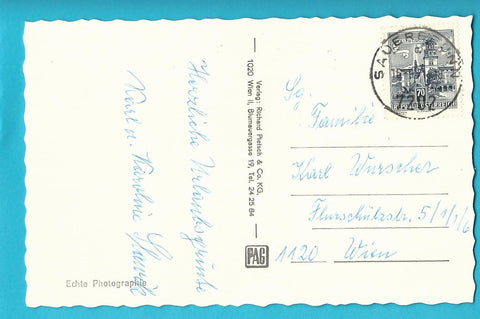 Herzliche Urlaubsgrüße
Karl u. Karoline
Echte Photographie
Verlag: Richard Pietsch & Co. KG,
1020 Wien II, Blumauergasse 19, Tel. 24 25 84
PAG
SAUERBRUNN
70
REPUBLIK ÖSTERREICH
Sg.
Familie
Karl Wurscher
Flurschützstr. 5/1/1/6
1120 Wien